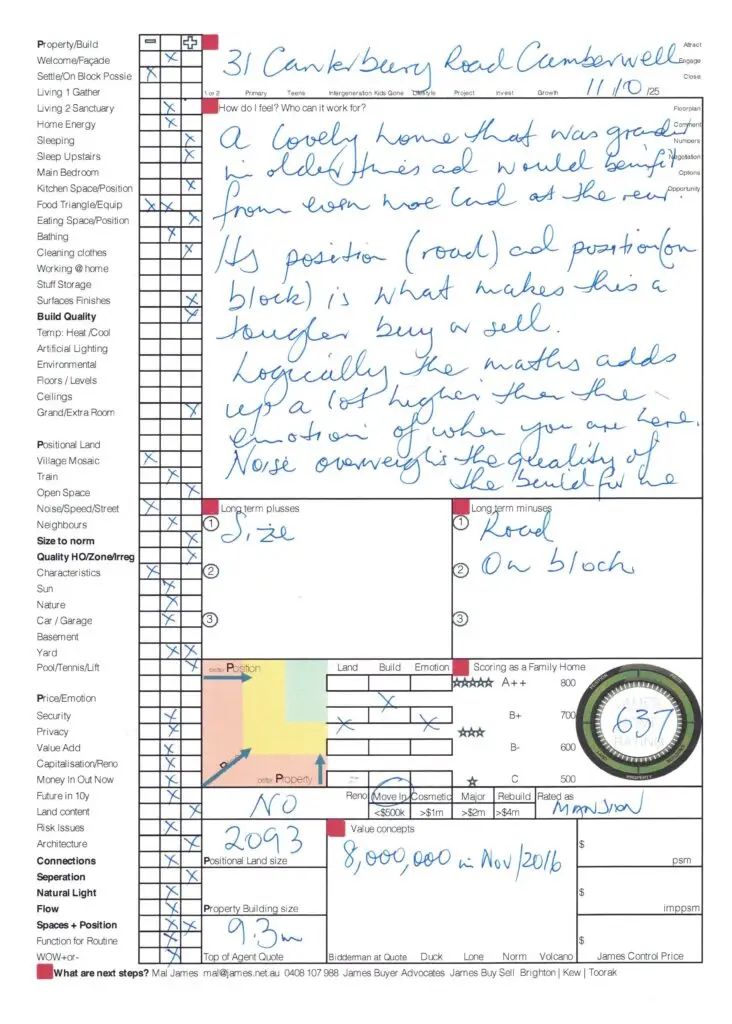 Property/Build
Welcome/Façade
Settle/On Block Possie
Living 1 Gather
Living 2 Sanctuary
Home Energy
Sleeping
Sleep Upstairs
Main Bedroom
Kitchen Space/Position
Food Triangle/Equip
Eating Space/Position
Bathing
Cleaning clothes
Working @ home
Stuff Storage
Surfaces Finishes
Build Quality
Temp: Heat /Cool
Artificial Lighting
Environmental
Floors / Levels
Ceilings
Grand/Extra Room
Positional Land
Village Mosaic
Train
Open Space
Noise/Speed/Street
Neighbours
Size to norm
Quality HO/Zone/Irreg
Characteristics
Sun
Nature
Car / Garage
Basement
Yard
Pool/Tennis/Lift
Price/Emotion
Security
Privacy
Value Add
Capitalisation/Reno
Money In Out Now
Future in 10y
Land content
Risk Issues
Architecture
Connections
Seperation
Natural Light
Flow
Spaces + Position
Function for Routine
WOW+or-
31 Canterbury Road Camberwell
Attract
Engage
Close
1 or 2 Primary Teens Intergeneration Kids Gone Lifestyle Project Invest Growth 11/10 /25
How do I feel? Who can it work for?
Floorplan
Comment
Numbers
Negotiation
Options
Opportunity
A lovely home that was grander
in older times ad would benefit
from even more land at the rear.
Its position (road) ad position (on
block) is what makes this a
tougher buy or sell.
Logically the maths adds
up a lot higher then the
emotion of when you are here.
Noise overweighs the quality of
the build for me
Long term plusses
① Size
②
③
Long term minuses
① Road
② On block
③
better Position
better Property
Land Build Emotion
Scoring as a Family Home
A++ 800
B+ 700
B- 600
C 500
637
POSITION
PROPERTY
NO
Reno Move In Cosmetic Major Rebuild Rated as
<$500k >$1m >$2m >$4m
MANSION
2093
Positional Land size
Property Building size
9.3m
Top of Agent Quote
Value concepts
8,000,000 in Nov/2016
Bidderman at Quote Duck Lone Norm Volcano
$ psm
$ imppsm
$
James Control Price
What are next steps? Mal James mal@james.net.au 0408 107 988 James Buyer Advocates James Buy Sell Brighton | Kew | Toorak